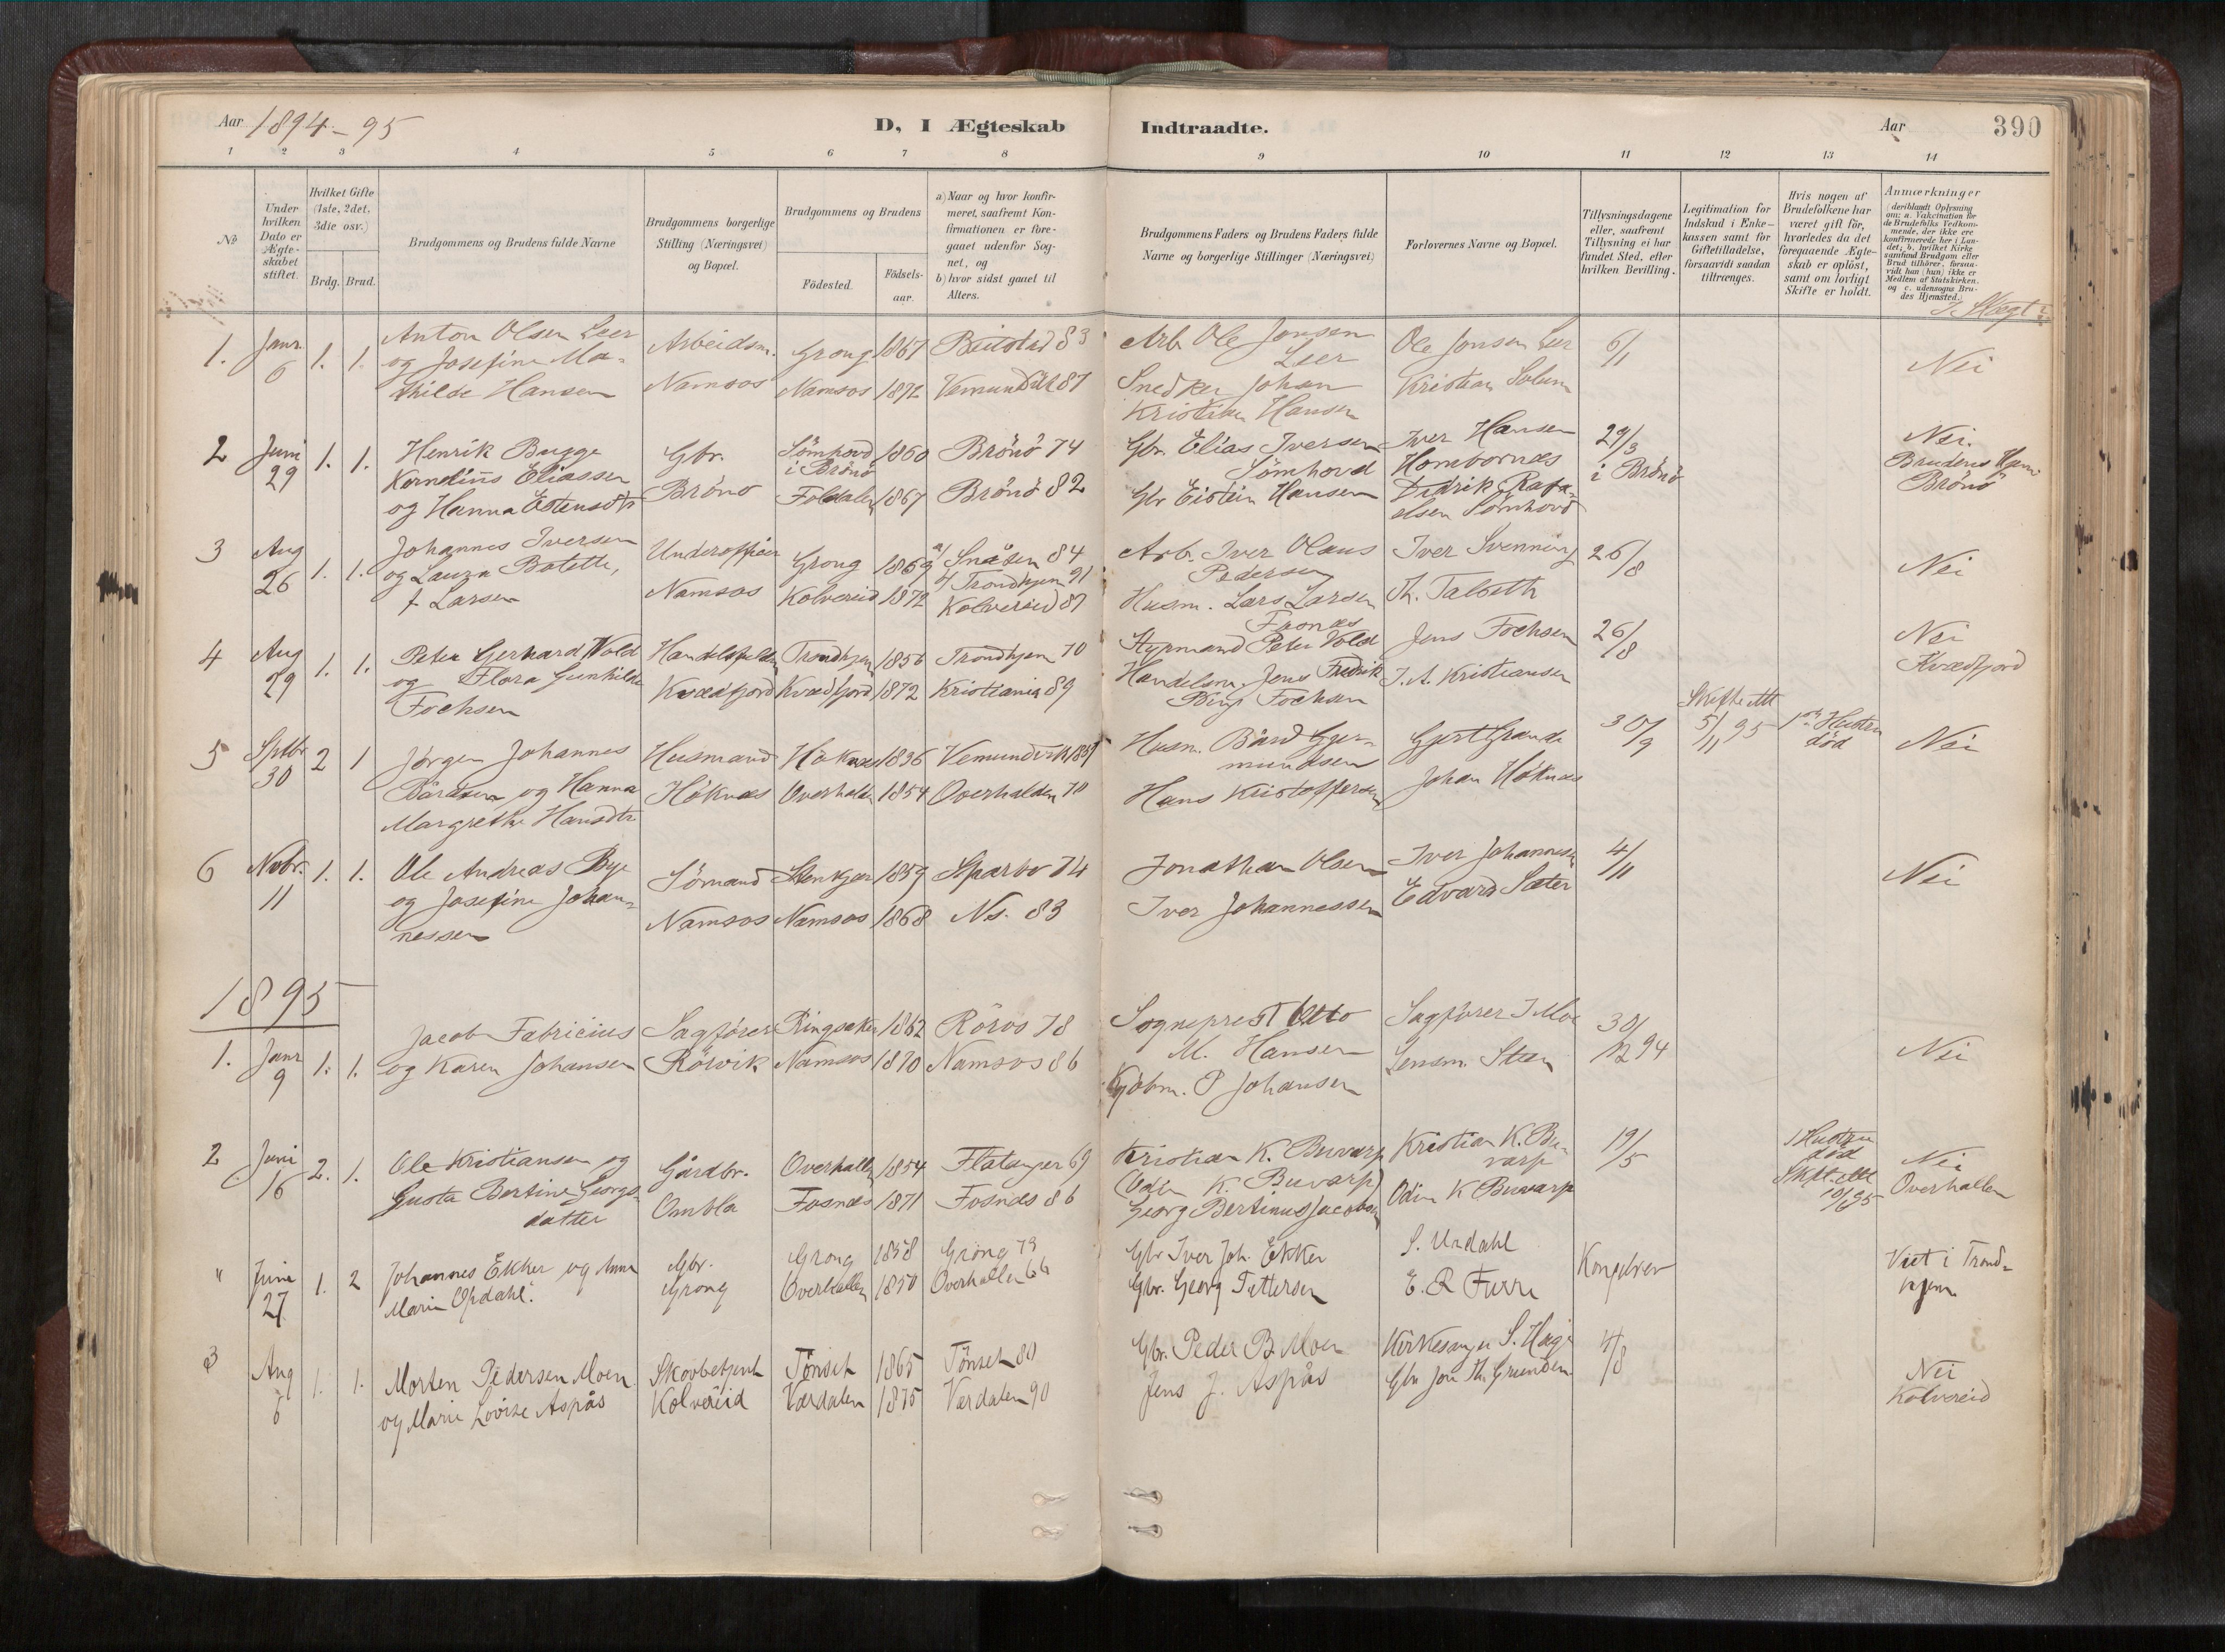 Aar 1894-95
D, I Ægteskab Indtraadte.
Aar 390
1 2 3 4 5 6 7 8 9 10 11 12 13 14
No
Under hvilken Dato er Ægteskabet stiftet.
Hvilket Gifte (1ste, 2det, 3die osv.)
Brdg. Brud.
Brudgommens og Brudens fulde Navne
Brudgommens borgerlige Stilling (Næringsvei) og Bopæl.
Brudgommens og Brudens
Fødested.
Fødselsaar.
a) Naar og hvor konfirmeret, saafremt Konfirmationen er foregaaet udenfor Sognet, og
b) hvor sidst gaaet til Alters.
Brudgommens Faders og Brudens Faders fulde Navne og borgerlige Stillinger (Næringsvei)
Forlovernes Navne og Bopæl.
Tillysningsdagene eller, saafremt Tillysning ei har fundet Sted, efter hvilken Bevilling.
Legitimation for Indskud i Enkekassen samt for Giftetilladelse, forsaavidt saadan tiltrænges.
Hvis nogen af Brudefolkene har været gift før, hvorledes da det foregaaende Ægteskab er opløst, samt om lovligt Skifte er holdt.
Anmærkninger
(deriblandt Oplysning om: a. Vakcination for de Brudefolks Vedkommende, der ikke ere konfirmerede her i Landet; b. hvilket Kirkesamfund Brudgom eller Brud tilhører, forsaavidt han (hun) ikke er Medlem af Statskirken. og c. udensogns Brudes Hjemsted.)
I Slægt?
1. Janr 6 1. 1.
Anton Olsen Leer
og Josefine Ma-
thilde Hansen
Arbeidsm.
Namsos
Grong 1867 Beitstad 83
Namsos 1872 Vemundvik 87
Arb. Ole Jonsen
Leer
Snedker Johan
Kristian Hansen
Ole Jonsen Leer
Kristian Solum
6/1
Nei
2 Juni 29 1. 1.
Henrik Bugge
Kornelius Eliassen
og Hanna Estensdtr
Gbr.
Brönö
Sömhovd
i Brönö 1860 Brönö 74
Foldalen 1867 Brönö 82
Gbr. Elias Iversen
Sömhovd
Gbr Eistein Hansen
Iver Hansen
Hombornæs
Didrik Rafa-
elsen Sömhovd
29/3
i Brönö
Nei.
Brudens Hjem
Brönö
3 Aug 26 1. 1.
Johannes Iversen
og Laura Batette,
f. Larsen
Underofficer
Namsos
Grong 1869 a/ Snåsen 84
b/ Trondhjem 91
Kolvereid 1872 Kolvereid 87
Arb. Iver Olaus
Pedersen
Husm. Lars Larsen
Fronæs
Iver Svenning
Th. Talseth
26/8
Nei
4 Aug 29 1. 1.
Peter Gerhard Vold
og Flora Gunhilde
Fochsen
Kvædfjord
Trondhjem 1856 Trondhjem 70
Kvædfjord 1872 Kristiania 89
Styrmand Peter Vold
Handelsm. Jens Fredrik
Fochsen
Jens Fochsen
J. A. Kristiansen
26/8
Nei
Kvædfjord
5 Sptbr 30 2 1
Jørgen Johannes
Bårdsen og Hanna
Margrethe Hansdtr
Husmand
Höknæs
Höknæs 1836 Vemundvik 1851
Overhalden 1854 Overhalden 70
Husm. Bård Gjer-
mundsen
Hans Kristoffersen
Gjert Grande
Johan Höknæs
30/9
Skifte att
5/11 95
1ste Hustru
död
Nei
6 Novbr. 11 1. 1.
Ole Andreas Bye
og Josefine Johan-
nessen
Sömand
Namsos
Stenkjær 1859 Sparbo 74
Namsos 1868 Ns. 83
Jonathan Olsen
Iver Johannessen
Iver Johannessen
Edvard Sæter
4/11
Nei
1895
1. Janr 9 1. 1.
Jacob Fabricius
og Karen Johansen
Sagfører
Rörvik
Ringsaker 1862 Röros 78
Namsos 1870 Namsos 86
Sogneprest Otto
M. Hansen
Kjöbm. P Johansen
Sagfører I Moe
Lensm. Steen
30/12 94
Nei
2 Juni 16 2. 1.
Ole Kristiansen og
Gusta Bertine Georgs-
datter
Gårdbr.
Ombla
Overhallen 1854 Flatanger 69
Fosnæs 1871 Fosnæs 86
Kristian K. Buvarp
(Odin K. Buvarp)
Georg Bertinus Jacobsen
Kristian K. Bu-
varp
Odin K Buvarp
19/5
1 Hustru
död
Skft. att
10/6 95
Nei
Overhallen
" Juni 27 1. 2
Johannes Ekker og Anna
Marie Opdahl.
Gbr.
Grong
Grong 1858 Grong 73
Overhallen 1850 Overhallen 66
Gbr Iver Joh. Ekker
Gbr. Georg Pettersen
S. Urdahl
E. R Furre
Kongebrev
Viet i Trond-
hjem
3 Aug 6 1. 1.
Morten Pedersen Moen
og Marie Lovise Aspås
Skovbetjent
Kolvereid
Tönset 1865 Tönset 80
Værdalen 1875 Værdalen 90
Gbr. Peder B. Moen
Jens J. Aspås
Kirkesanger S. Hage
Gbr Jon Th. Grunden
4/8
Nei
Kolvereid